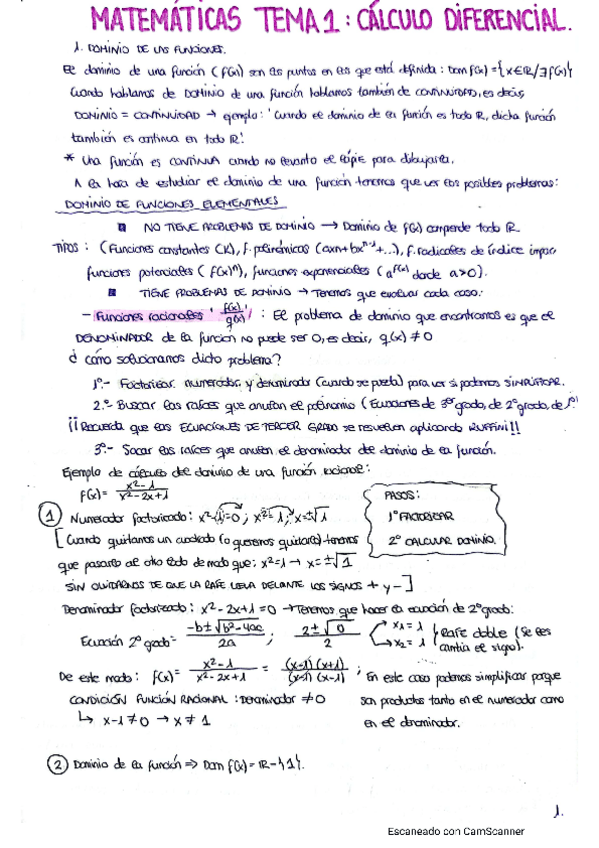 MATEMÁTICAS TEMA 1: CÁLCULO DIFERENCIAL.
1. DOMINIO DE LAS FUNCIONES.
El dominio de una función (f(x)) son los puntos en los que está definida: Dom f(x) = {x∈R/∃f(x)}
Cuando hablamos de DOMINIO de una función hablamos también de CONTINUIDAD, es decir,
DOMINIO = CONTINUIDAD → ejemplo: 'Cuando el dominio de la función es todo R, dicha función
también es continua en todo R!
* Una función es CONTINUA cuando no levanto el lápiz para dibujarla.
A la hora de estudiar el dominio de una función tenemos que ver los posibles problemas:
DOMINIO DE FUNCIONES ELEMENTALES
NO TIENE PROBLEMAS DE DOMINIO → Dominio de f(x) comprende todo R
TIPOS: (Funciones constantes (K), f. polinómicas (axn+bx^n-1+...), f. radicales de índice impar,
funciones potenciales (f(x)^n), funciones exponenciales (a^f(x) donde a>0).
TIENE PROBLEMAS DE DOMINIO → Tenemos que evaluar cada caso:
- Funciones racionales ' f(x)/g(x) ' : El problema de dominio que encontramos es que el
DENOMINADOR de la función no puede ser 0, es decir, g(x) ≠ 0
¿ cómo solucionamos dicho problema?
1º.- Factorizar numerador y denominador (cuando se pueda) para ver si podemos SIMPLIFICAR.
2.º- Buscar las raíces que anulan el polinomio (Ecuaciones de 3er grado, de 2º grado, de 1º!
¡¡RECUERDA que las ECUACIONES DE TERCER GRADO se resuelven aplicando RUFFINI!!
3º.- Sacar las raíces que anulan el denominador del dominio de la función.
Ejemplo de cálculo del dominio de una función racional:
f(x) = x²-1 / x²-2x+1
PASOS:
1º FACTORIZAR
2º CALCULAR DOMINIO.
① Numerador factorizado: x²-1=0; x²=1; x=±√1
[Cuando quitamos un cuadrado (o queremos quitarlo) tenemos
que pasarlo al otro lado de modo que: x²=1 → x=±√1
SIN OLVIDARNOS DE QUE LA RAÍZ LLEVA DELANTE LOS SIGNOS + y -]
Denominador factorizado: x²-2x+1=0 → Tenemos que hacer la ecuación de 2º grado:
Ecuación 2º grado = -b±√b²-4ac / 2a ; 2±√0 / 2 x₁=1 x₂=1 } Raíz doble (se les cambia el signo).
De este modo: f(x) = x²-1 / x²-2x+1 = (x-1)(x+1) / (x-1)(x-1) ; En este caso podemos simplificar porque
CONDICIÓN FUNCIÓN RACIONAL: Denominador ≠ 0 son productos tanto en el numerador como
↳ x-1≠0 → x≠1 en el denominador.
② Dominio de la función ⇒ Dom f(x) = R-{1}.
1.
Escaneado con CamScanner